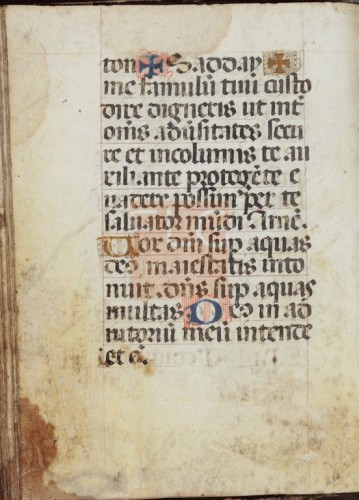 ton ✠ Sadday ✠
me famulū tuū custo
dire digneris ut int̄
om̄s adūsitates secu
re et incolumis te au
xiliante protegēte e
uadere possim per te
saluator mūdi Amē.
Vox dm̄ sup aquas
deꝰ maiestatis into
nuit. dn̄s sup aquas
multas Deꝰ in ad
iutoriū meū intende
et c̄.